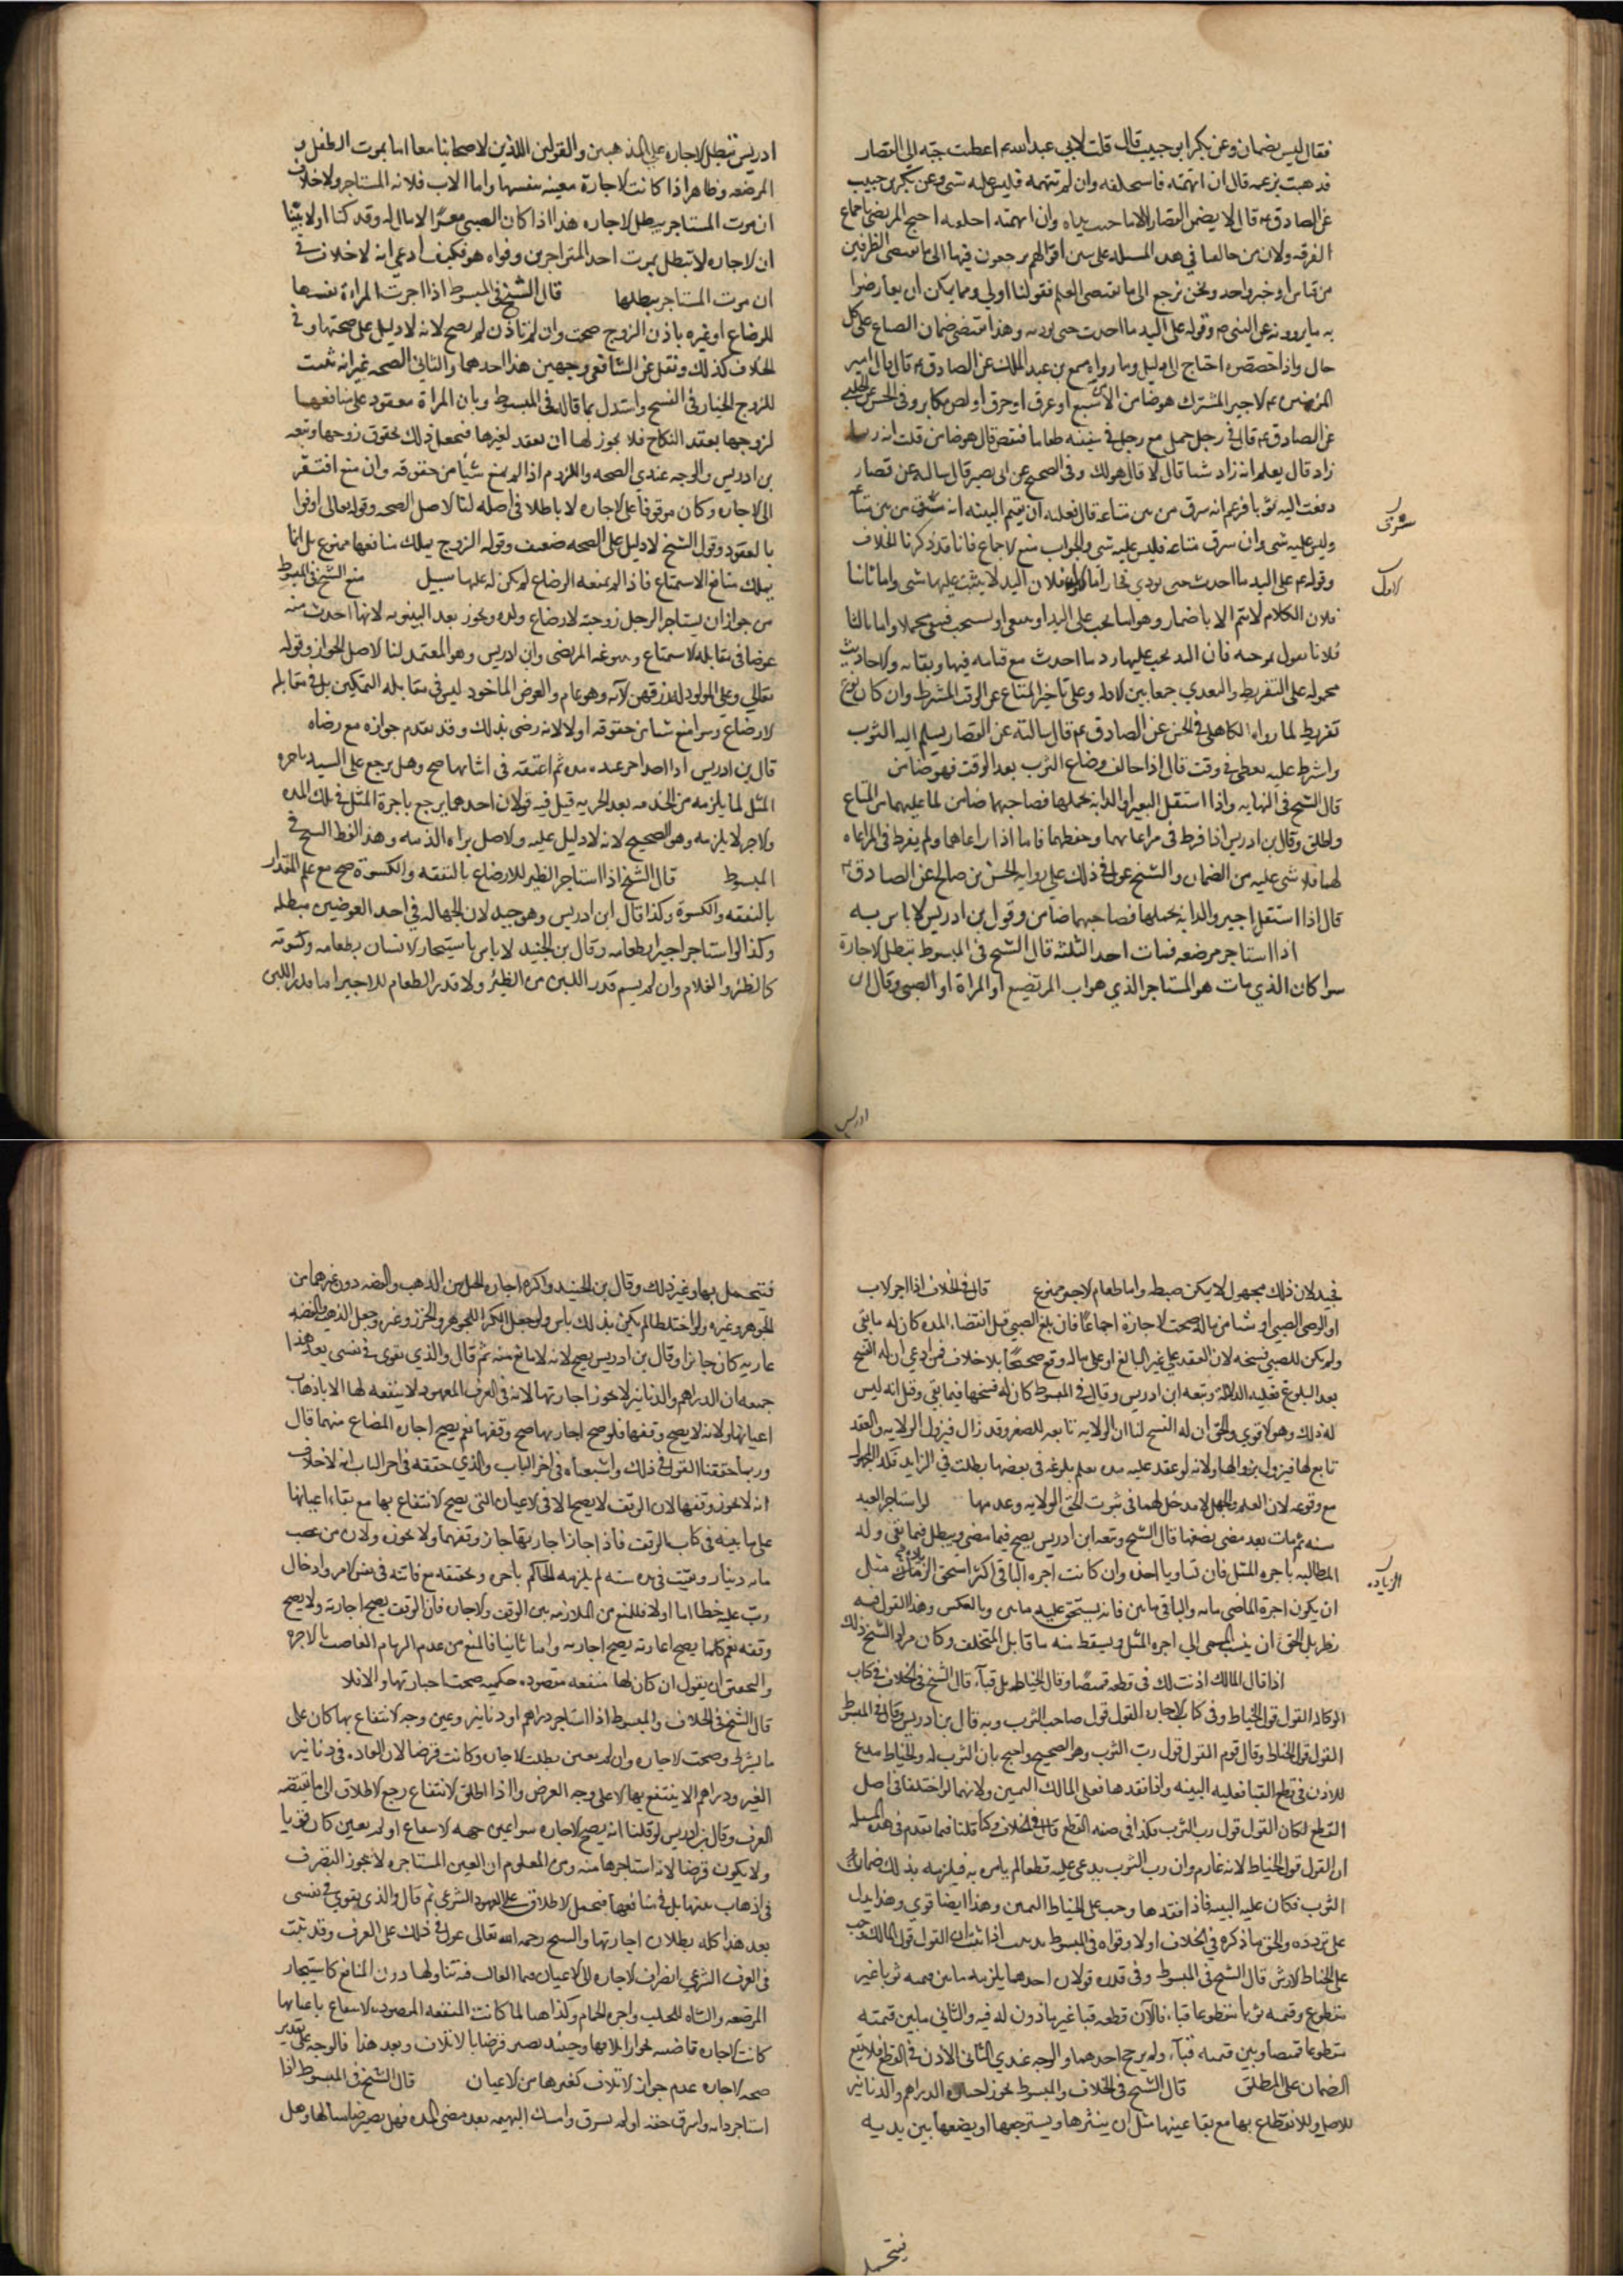 فقال ليس بضمان وعن بكر ابو حبيب قال قلت لابي عبد الله ع اعطيت جبه الى القصار
فذهبت بزعمه قال ان اتهمته فاستحلفه وان لم تتهمه فليس عليه شى وعن بكر بن حبيب
عن الصادق ع قال لا يضمن القصار الا ما جنت يداه وان اتهمته احلفته احتج المرتضى باجماع
الفرقه ولان من خالفنا في هذه المسئله على سن اقوالهم يرجعون فيها الى ما يقتضى الظن من
من قياس او خبر واحد ونحن نرجع الى ما يقتضى العلم فقولنا اولى ومما يمكن ان يعارضوا
به ما يروونه عن النبي ص وقوله على اليد ما اخذت حتى توديه وهذا يقتضى ضمان الصناع على كل
حال واذا خصصوه احتاج الى دليل وما رواه مسمع بن عبد الملك عن الصادق ع قال قال امير
المومنين ع الاجير المشترك هو ضامن الا من سبع او غرق او حرق او لص مكابر وفى الحسن عن الحلبي
عن الصادق ع قال فى رجل حمل مع رجل فى سفينه طعاما فنقص قال هو ضامن قلت انه ربما
زاد قال يعلم انه زاد شيا قال لا قال هو لك وفى الصحيح عن ابى بصير قال سالته عن قصار
دفعت اليه ثوبا فزعم انه سرق من بين متاعه قال فعليه ان يقيم البينه انه سرق من بين متاعه
وليس عليه شى وان سرق متاعه فليس عليه شى والجواب منع الاجماع فانا قد ذكرنا الخلاف
وقوله ع على اليد ما اخذت حتى تودي اما اولا فلان اليد لا يثبت عليها شى واما ثانيا
فلان الكلام لا يتم الا باضمار وهو اما يجب على اليد او ينبغى او يستحب فيبقى مجملا واما ثالثا
فلانا نقول بموجبه فان اليد يجب عليها رد ما اخذت مع قيامه فيها وبقائه والاحاديث
محموله على التفريط والتعدي جمعا بين الادله وعلى تاخير المتاع عن الوقت المشترط وان كان نوع
تفريط لما رواه الكاهلى فى الحسن عن الصادق ع قال سالته عن القصار يسلم اليه الثوب
واشترط عليه يعطى فى وقت قال اذا خالف وضاع الثوب بعد الوقت فهو ضامن
قال الشيخ فى النهايه واذا استقل البعير او الدابه بحملها فصاحبهما ضامن لما عليهما من المتاع
واطلق وقال بن ادريس اذا فرط فى مراعاتهما وحفظهما فاما اذا راعاهما ولم يفرط فى المراعاه
لهما فلا شى عليه من الضمان والشيخ عول فى ذلك على روايه الحسن بن صالح عن الصادق ع
قال اذا استقل البعير والدابه بحملها فصاحبهما ضامن وقول بن ادريس لا باس به
اذا استاجر مرضعه فمات احد الثلثه قال الشيخ فى المبسوط تبطل الاجارة
سوا كان الذي مات هو المستاجر الذي هو اب المرتضع او المراة او الصبى وقال ابن
سرق
الاول
ادريس
ادريس تبطل الاجاره على المذهبين والقولين اللذين لاصحابنا معا اما بموت الطفل و
المرضعه وظاهر اذا كانت الاجارة معينه بنفسها واما الاب فلانه المستاجر ولا خلاف
ان موت المستاجر يبطل الاجاره هذا اذا كان الصبى معسرا لا مال له وقد كنا اولا بينا
ان الاجاره لا تبطل بموت احد المتواجرين وقواه هو فكيف ادعى انه لا خلاف فى
ان موت المستاجر يبطلها قال الشيخ فى المبسوط اذا اجرت المراءة نفسها
للرضاع او غيره باذن الزوج صحت وان لم تاذن لم يصح لانه لا دليل على صحتها وفى
الخلاف كذلك ونقل عن الشافعى وجهين هذا احدهما والثانى الصحه غير انه ثبت
للزوج الخيار فى الفسخ واستدل بما قاله فى المبسوط وبان المراة معقود على منافعها
لزوجها بعقد النكاح فلا يجوز لها ان تعقد لغيرها فتعطل ذلك لحقوق زوجها وتبعه
بن ادريس والوجه عندي الصحه واللزوم اذا لم يمنع شيئا من حقوقه وان منع افتقر
الى اجازه وكان موقوفا على الاجازه لا باطلا فى اصله لنا الاصل الصحه وقوله تعالى اوفوا
بالعقود وقول الشيخ لا دليل على الصحه ضعيف وقوله الزوج يملك منافعها ممنوع بل انما
يملك منافع الاستمتاع فاذا لم يمنعه الرضاع لم يكن له عليها سبيل منع الشيخ فى المبسوط
من جواز ان يستاجر الرجل زوجته لارضاع ولده ويجوز بعد البينونه لانها اخذت منه
عوضا فى مقابله الاستمتاع وسوغه المرتضى وابن ادريس وهو المعتمد لنا الاصل الجواز وقوله
تعالى وعلى المولود له رزقهن الآيه وهو عام والعوض الماخوذ ليس فى مقابله التمكين بل فى مقابله
الارضاع وسوا منع شيا من حقوقه اولا لانه رضى بذلك وقد تقدم جوازه مع رضاه
قال بن ادريس اذا اجر عبده مده ثم اعتقه فى اثنائها صح وهل يرجع على السيد باجره
المثل لما يلزمه من الخدمه بعد الحريه قيل فيه قولان احدهما يرجع باجرة المثل فى تلك المده
والاخر لا يلزمه وهو الصحيح لانه لا دليل عليه والاصل براءه الذمه وهذا لفظ الشيخ فى
المبسوط قال الشيخ اذا استاجر الظير للارضاع بالنفقه والكسوة صح مع علم المقدار
بالنفقه والكسوة وكذا قال ابن ادريس وهو جيد لان الجهاله فى احد العوضين مبطله
وكذا لو استاجر اجيرا بطعامه وقال بن الجنيد لا باس باستيجار الانسان بطعامه وكسوته
كالظئر والغلام وان لم يسم قدر اللبن من الظئر ولا قدر الطعام للاجير اما قدر اللبن
فجيد لان ذلك مجهول لا يمكن ضبطه واما طعام الاجير فممنوع قال فى الخلاف اذا اجر الاب
او الوصى الصبى او شيا من ماله صحت الاجازة اجماعا فان بلغ الصبى قبل انقضاء المده كان له ما بقى
ولم يكن للصبى فسخه لان العقد على غير البالغ او على ماله وقع صحيحا بلا خلاف فمن ادعى ان له الفسخ
بعد البلوغ فعليه الدلالة وتبعه ابن ادريس وقال فى المبسوط كان له فسخها فيما بقى وقيل انه ليس
له ذلك وهو الاقوي والحق ان له الفسخ لنا ان الولايه تابعه للصغر وقد زال فيزول الولايه والعقد
تابع لها فيزول بزوالها ولانه لو عقد عليه مده يعلم بلوغه فى بعضها بطلت فى الزايد فكذا المجهول
مع وقوعه لان العلم والجهل لا مدخل لهما فى ثبوت الحق الولايه وعدمها لو استاجر العبد
سنه ثم مات بعد مضى نصفها قال الشيخ وتبعه ابن ادريس يصح فيما مضى ويبطل فيما بقى وله
المطالبه باجره المثل فان تساويا اخذه وان كانت اجره الباقى اكثر استحق الزياده مثل
ان يكون اجرة الماضى مايه والباقى مايتين فانه يستحق عليه مايتين وبالعكس وهذا القول فيه
نظر بل الحق ان ينسب المسمى الى اجره المثل ويسقط منه ما قابل المتخلف وكان مراد الشيخ ذلك
اذا قال المالك اذنت لك فى قطعه قميصا وقال الخياط بل قباء قال الشيخ فى الخلاف فى كتاب
الوكاله القول قول الخياط وفى كتاب الاجاره القول قول صاحب الثوب وبه قال بن ادريس وقال فى المبسوط
القول قول الخياط وقال قوم القول قول رب الثوب وهو الصحيح واحتج بان الثوب له والخياط مدع
للاذن فى قطع القبا فعليه البينه واذا فقدها فعلى المالك اليمين ولانهما لو اختلفا فى اصل
القطع لكان القول قول رب الثوب فكذا فى صفه القطع قال فى الخلاف وكنا قلنا فيما تقدم فى هذه المسئله
ان القول قول الخياط لانه غارم وان رب الثوب يدعى عليه قطعا لم يامره به فيلزمه بذلك ضمان
الثوب فكان عليه البينه فاذا فقدها وجب على الخياط اليمين وهذا ايضا قوي وهذا يدل
على تردده والحق ما ذكره فى الخلاف اولا وقواه فى المبسوط اذا ثبت ان القول قول المالك وجب
على الخياط الارش قال الشيخ فى المبسوط وفى قدره قولان احدهما يلزمه ما بين قيمته ثوبا غير
مقطوع وقيمته ثوبا مقطوعا قباء فالآن قطعه قبا غير ماذون له فيه والثانى ما بين قيمته
مقطوعا قميصا وبين قيمته قباء ولم يرجح احدهما والوجه عندي الثانى الاذن فى القطع فلا يقع
الضمان على المطلق قال الشيخ فى الخلاف والمبسوط يجوز اجاره الدراهم والدنانير
للاصل وللانتفاع بها مع بقا عينها مثل ان ينثرها ويسترجعها او يضعها بين يديه
الزياده
فيتحمل
فيتجمل بها وغير ذلك وقال بن الجنيد واكره اجاره الحلى من الذهب والفضه دون غيرهما من
الجوهر وغيره ولو اختلطا لم يكن بذلك باس ولو جعل الكرا للجوهر والخرز وغيره وجعل الذهب والفضه
عاريه كان جائزا وقال بن ادريس يصح لانه لا مانع منه ثم قال والذي يقوى فى نفسى بعد هذا
جميعه ان الدراهم والدنانير لا يجوز اجارتها لانه فى العرف المعهود لا منفعه لها الا باذهاب
اعيانها ولانه لا يصح وقفها فلو صح اجارتها صح وقفها نعم يصح اجاره المصاغ منهما قال
وربما حققنا القول فى ذلك واشبعناه فى اخر الباب والذي حققه فى اخر الباب انه لا خلاف
انه لا يجوز وقفها لان الوقف لا يصح الا فى الاعيان التى يصح الانتفاع بها مع بقاء اعيانها
على ما بينه فى كتاب الوقف فاذا جاز اجارتها جاز وقفها ولا يجوز ولان من غصب
مايه دينار وبقيت فى يده سنه لم يلزمه الحاكم باجره
وقفه نعم كلما يصح اعارته يصح اجارته واما ثانيا فالمنع من عدم الزام الغاصب بالاجره
والتحقيق ان يقول ان كان لها منفعه مقصوده حكميه صحت اجارتها والا فلا
قال الشيخ فى الخلاف والمبسوط اذا استاجر دراهم او دنانير وعين وجه الانتفاع بها كان على
ما شرط وصحت الاجاره وان لم يعين بطلت الاجاره وكانت قرضا لان العاده فى دنانير
الغير ودراهم الا ينتفع بها الا على وجه القرض واذا اطلق الانتفاع رجع الاطلاق الى ما يقتضيه
العرف وقال بن ادريس لو قلنا انه يصح الاجاره سوا عين جهه الانتفاع او لم يعين كان قويا
ولا يكون قرضا لانه استاجرها منه ومن المعلوم ان العين المستاجره لا يجوز التصرف
فى اذهاب عينها بل فى منافعها فيحمل الاطلاق على المعهود الشرعى ثم قال والذي يقوى فى نفسى
بعد هذا كله بطلان اجارتها والشيخ رحمه الله تعالى عول فى ذلك على العرف وقد ثبت
فى العرف الشرعى انصراف الاجاره الى الاعيان فيما الغالب فيه تناولها دون المنافع كاستيجار
المرضعه والشاه للحلب واجره الحمام وكذا هنا لما كانت المنفعه المقصوده الانتفاع باعيانها
كانت الاجاره قاضيه بجواز اتلافها وحينئذ يصير قرضا بالاتلاف وبعد هذا فالوجه على تقدير
صحه الاجاره عدم جواز الاتلاف كغيرها من الاعيان قال الشيخ فى المبسوط اذا
استاجر دابه وامسك البهيمه بعد مضى المده فهل يصير ضامنا لها وهل